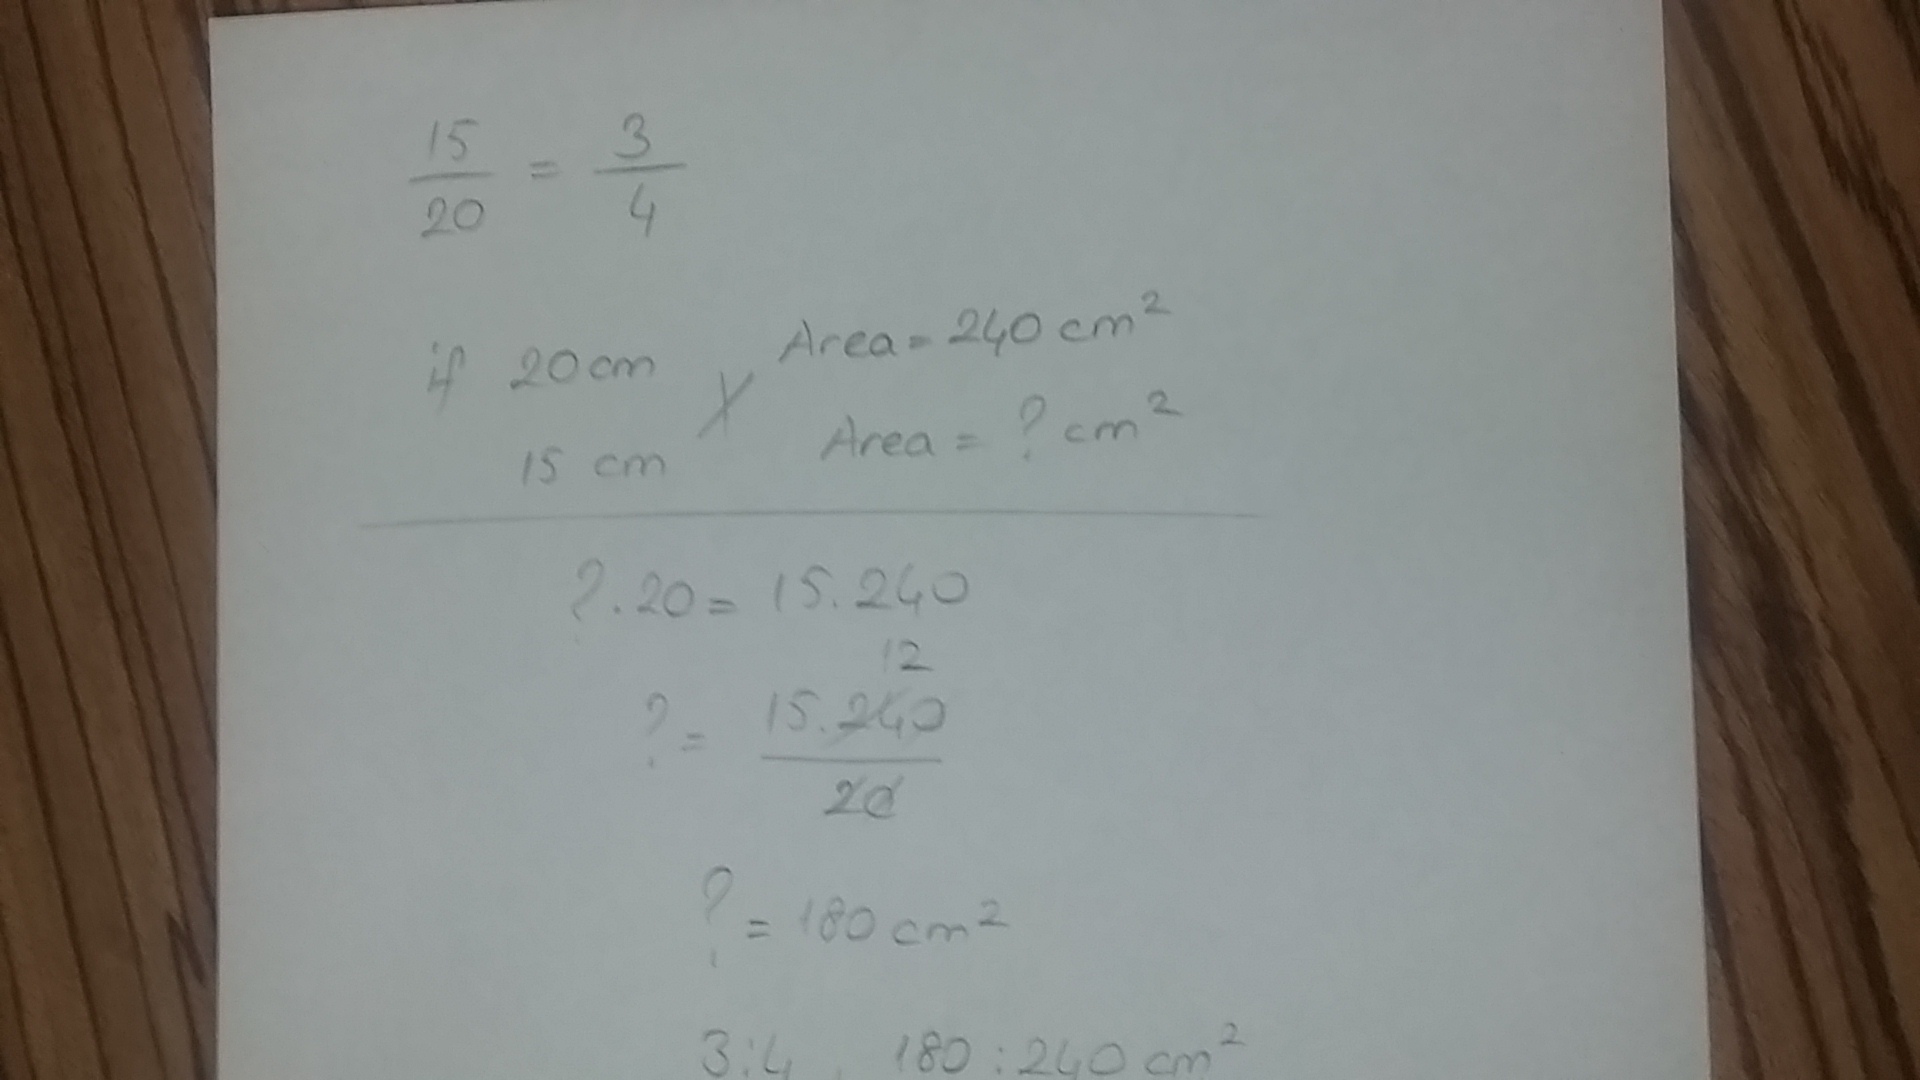 15/20 = 3/4
if 20 cm X Area = 240 cm²
15 cm Area = ? cm²
? . 20 = 15 . 240
12
? = 15 . 240 / 20
? = 180 cm²
3:4 , 180 : 240 cm²